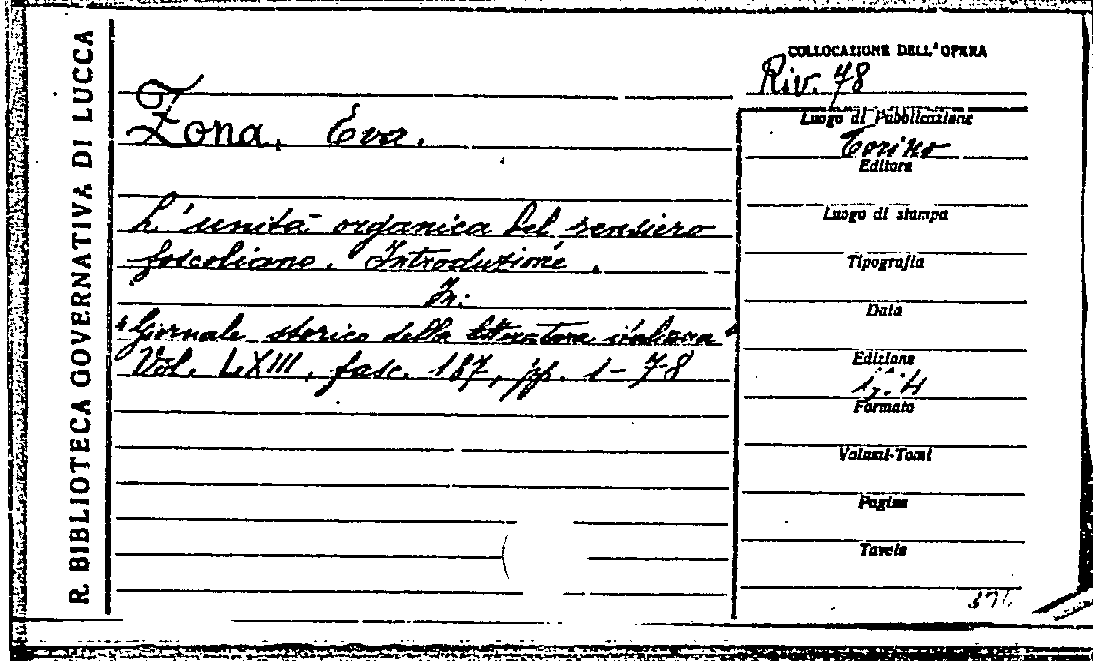 R. BIBLIOTECA GOVERNATIVA DI LUCCA
COLLOCAZIONE DELL'OPERA
Riv. 78
Zona, Eva.
L'unità organica del pensiero
foscoliano. Introduzione.
In:
"Giornale storico della letteratura italiana"
Vol. LXIII, fasc. 187, pp. 1-78
Luogo di Pubblicazione
Torino
Editore
Luogo di stampa
Tipografia
Data
Edizione
Formato
Volumi-Tomi
Pagine
Tavole